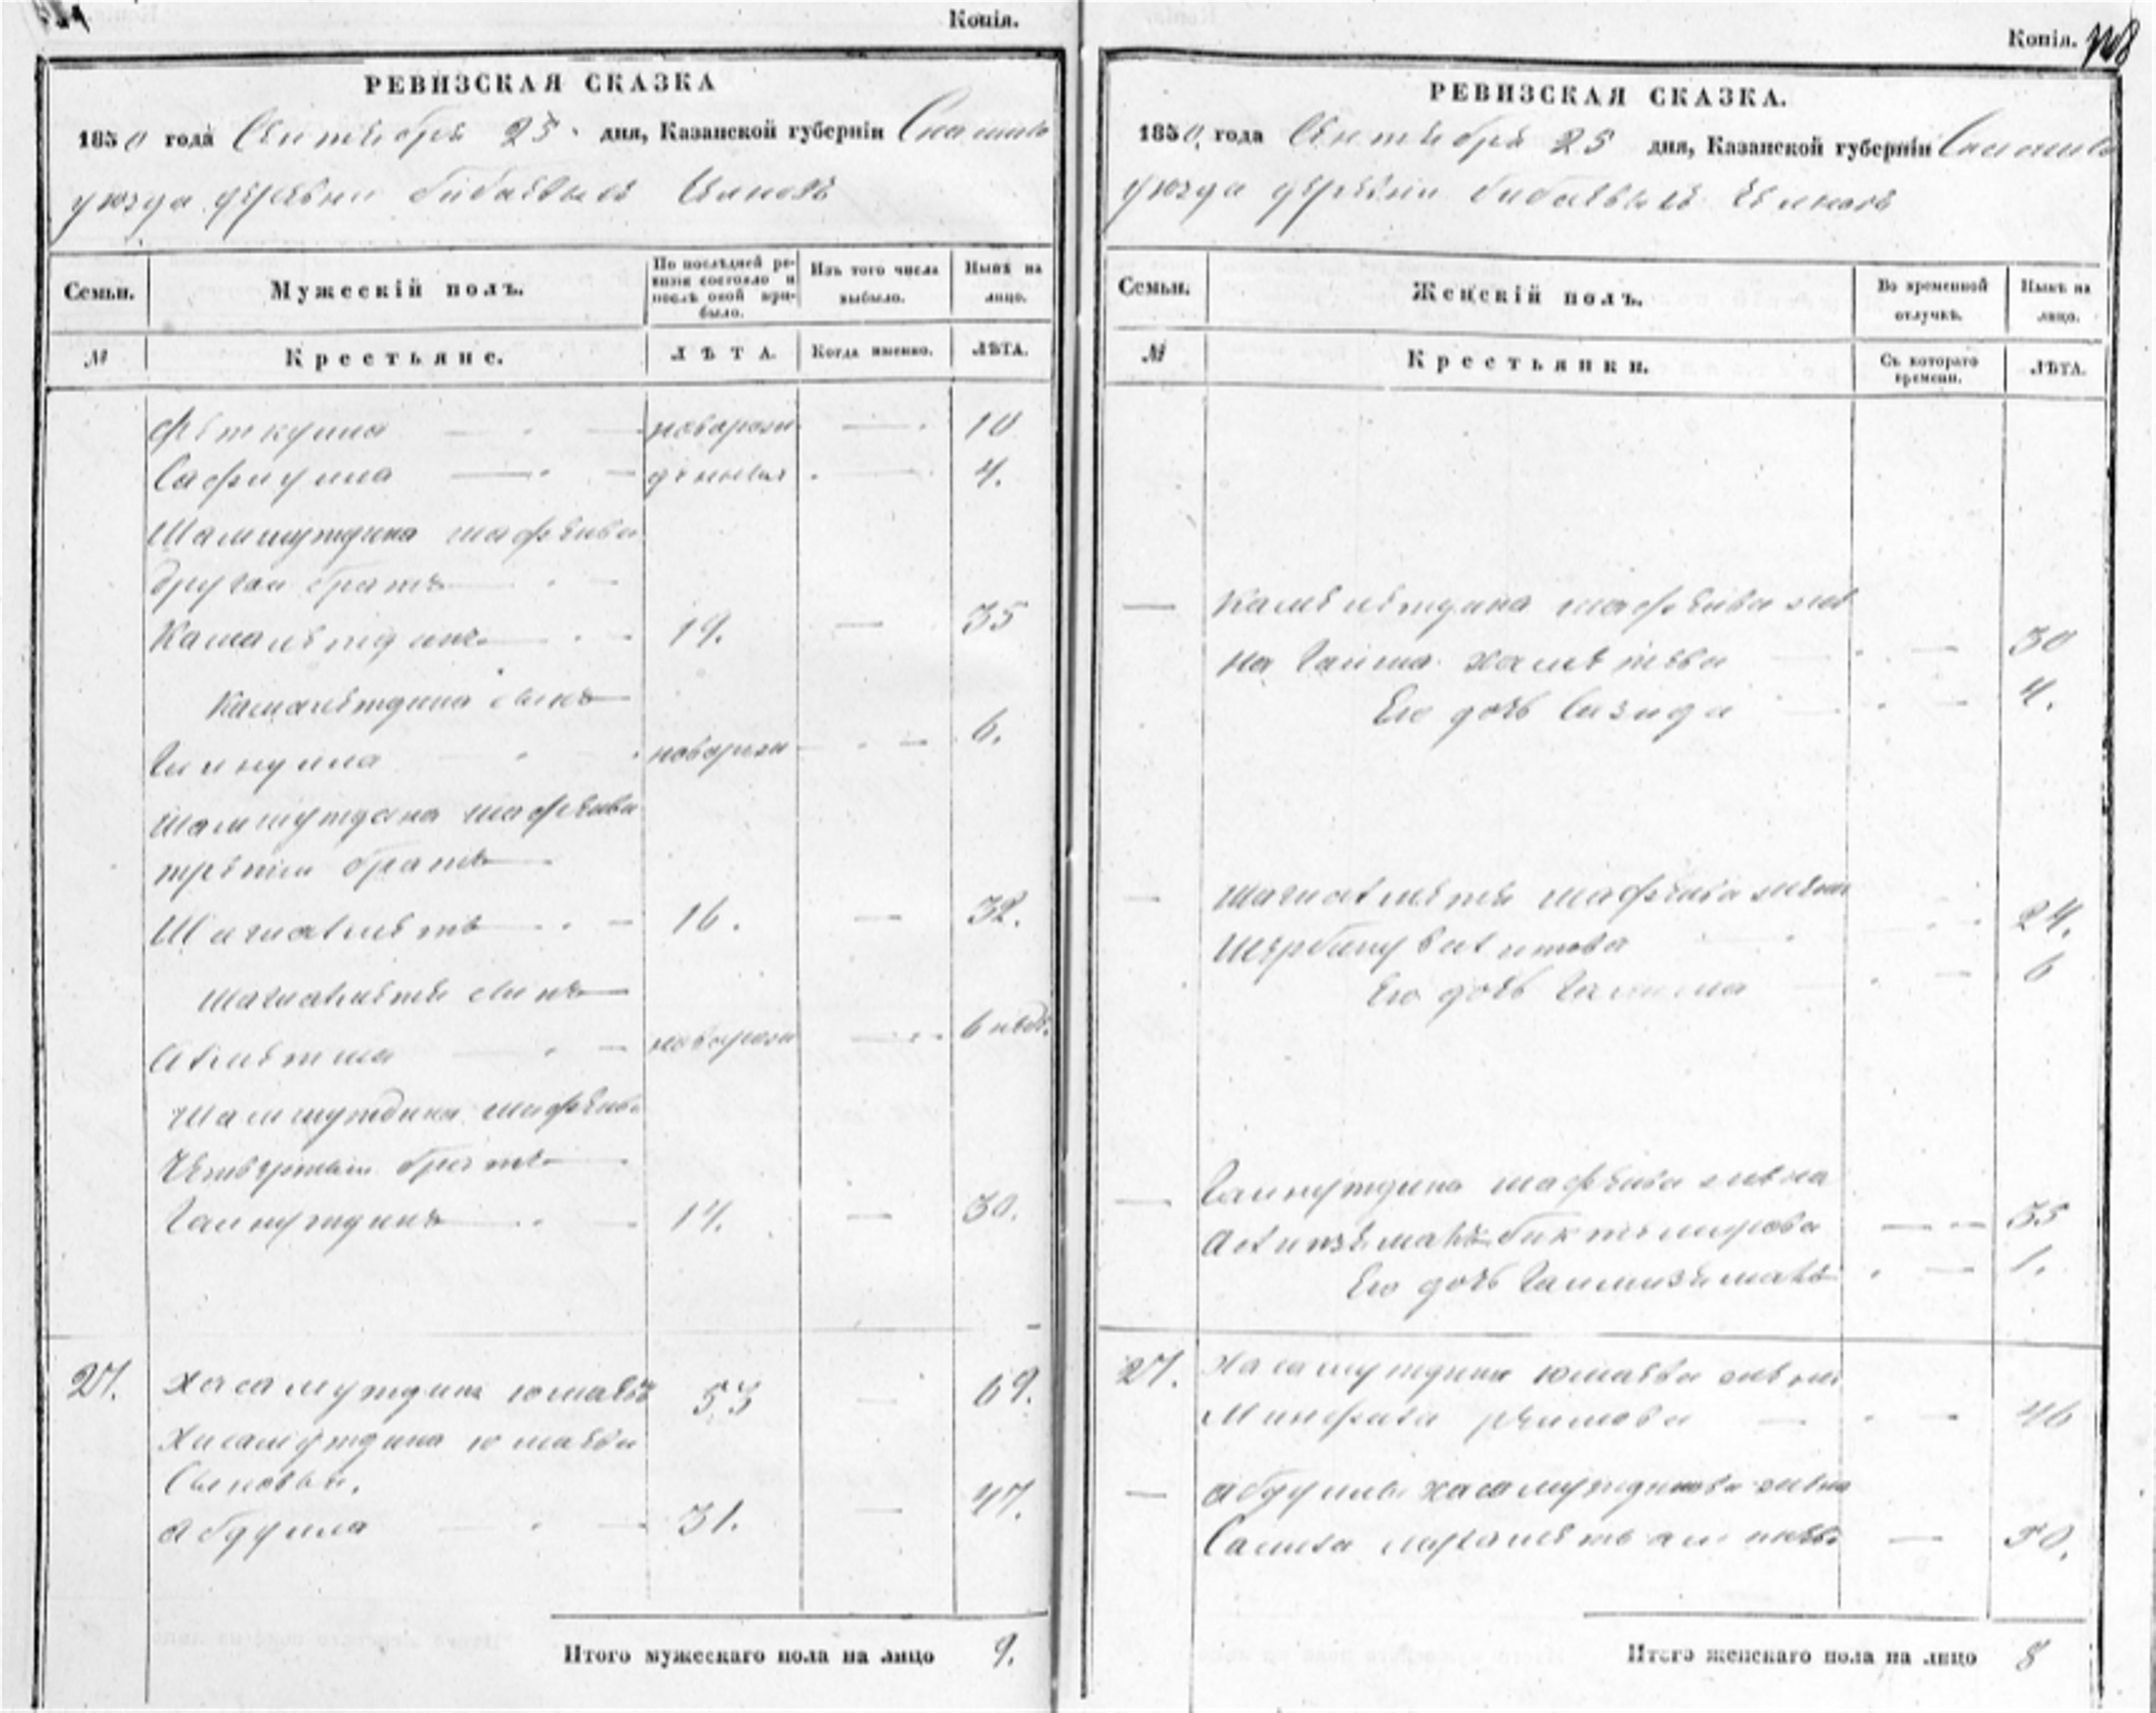 Копія.
РЕВИЗСКАЯ СКАЗКА
1850 года Сентября 25 дня, Казанской губерніи Спаскаго
уезда деревни Бибаевыхъ Челновъ
Семьи.
Мужескій полъ.
По послѣдней ревизіи состояло и послѣ оной прибыло.
Изъ того числа выбыло.
Нынѣ на лицо.
№
Крестьяне.
ЛѢТА.
Когда именно.
ЛѢТА.
Феткулла новорож 10
Сафиулла денныя 4.
Шамшутдина Шафеива
другой братъ
Камалетдинъ 19. 35
Камалетдина сынъ
новорож 6.
Шамшутдина Шафеива
третій братъ
Шагиахметъ 16. 32.
Шагиахметя сынъ
Ахметша новорож 6 нед.
Шамшутдина Шафеива
Четвертый братъ
Гайнутдинъ 14. 30.
27. Хасамутдинъ Юшаевъ 53 69.
Хисамутдина Юшаева
Сыновья,
Абдулла 31. 47.
Итого мужескаго пола на лицо 9.
Копія. 708
РЕВИЗСКАЯ СКАЗКА.
1850, года Сентября 25 дня, Казанской губерніи Спаскаго
уезда деревни Бибаевыхъ Челновъ
Семьи.
Женскій полъ.
Во временной отлучкѣ.
Нынѣ на лицо.
№
Крестьянки.
Съ котораго времени.
ЛѢТА.
Камелетдина Шафеива же
на Гайша Хаметева 30
Его дочь 4.
Шагиахметя Шафеива жена
24.
Его дочь Галима 6
Гайнутдина Шафеива жена
Бектемирова 35
Его дочь 1.
27. Хасамутдина Юшаева жена
46
Абдуллы Хасамутдинова жена
Салиха 30.
Итого женскаго пола на лицо 8